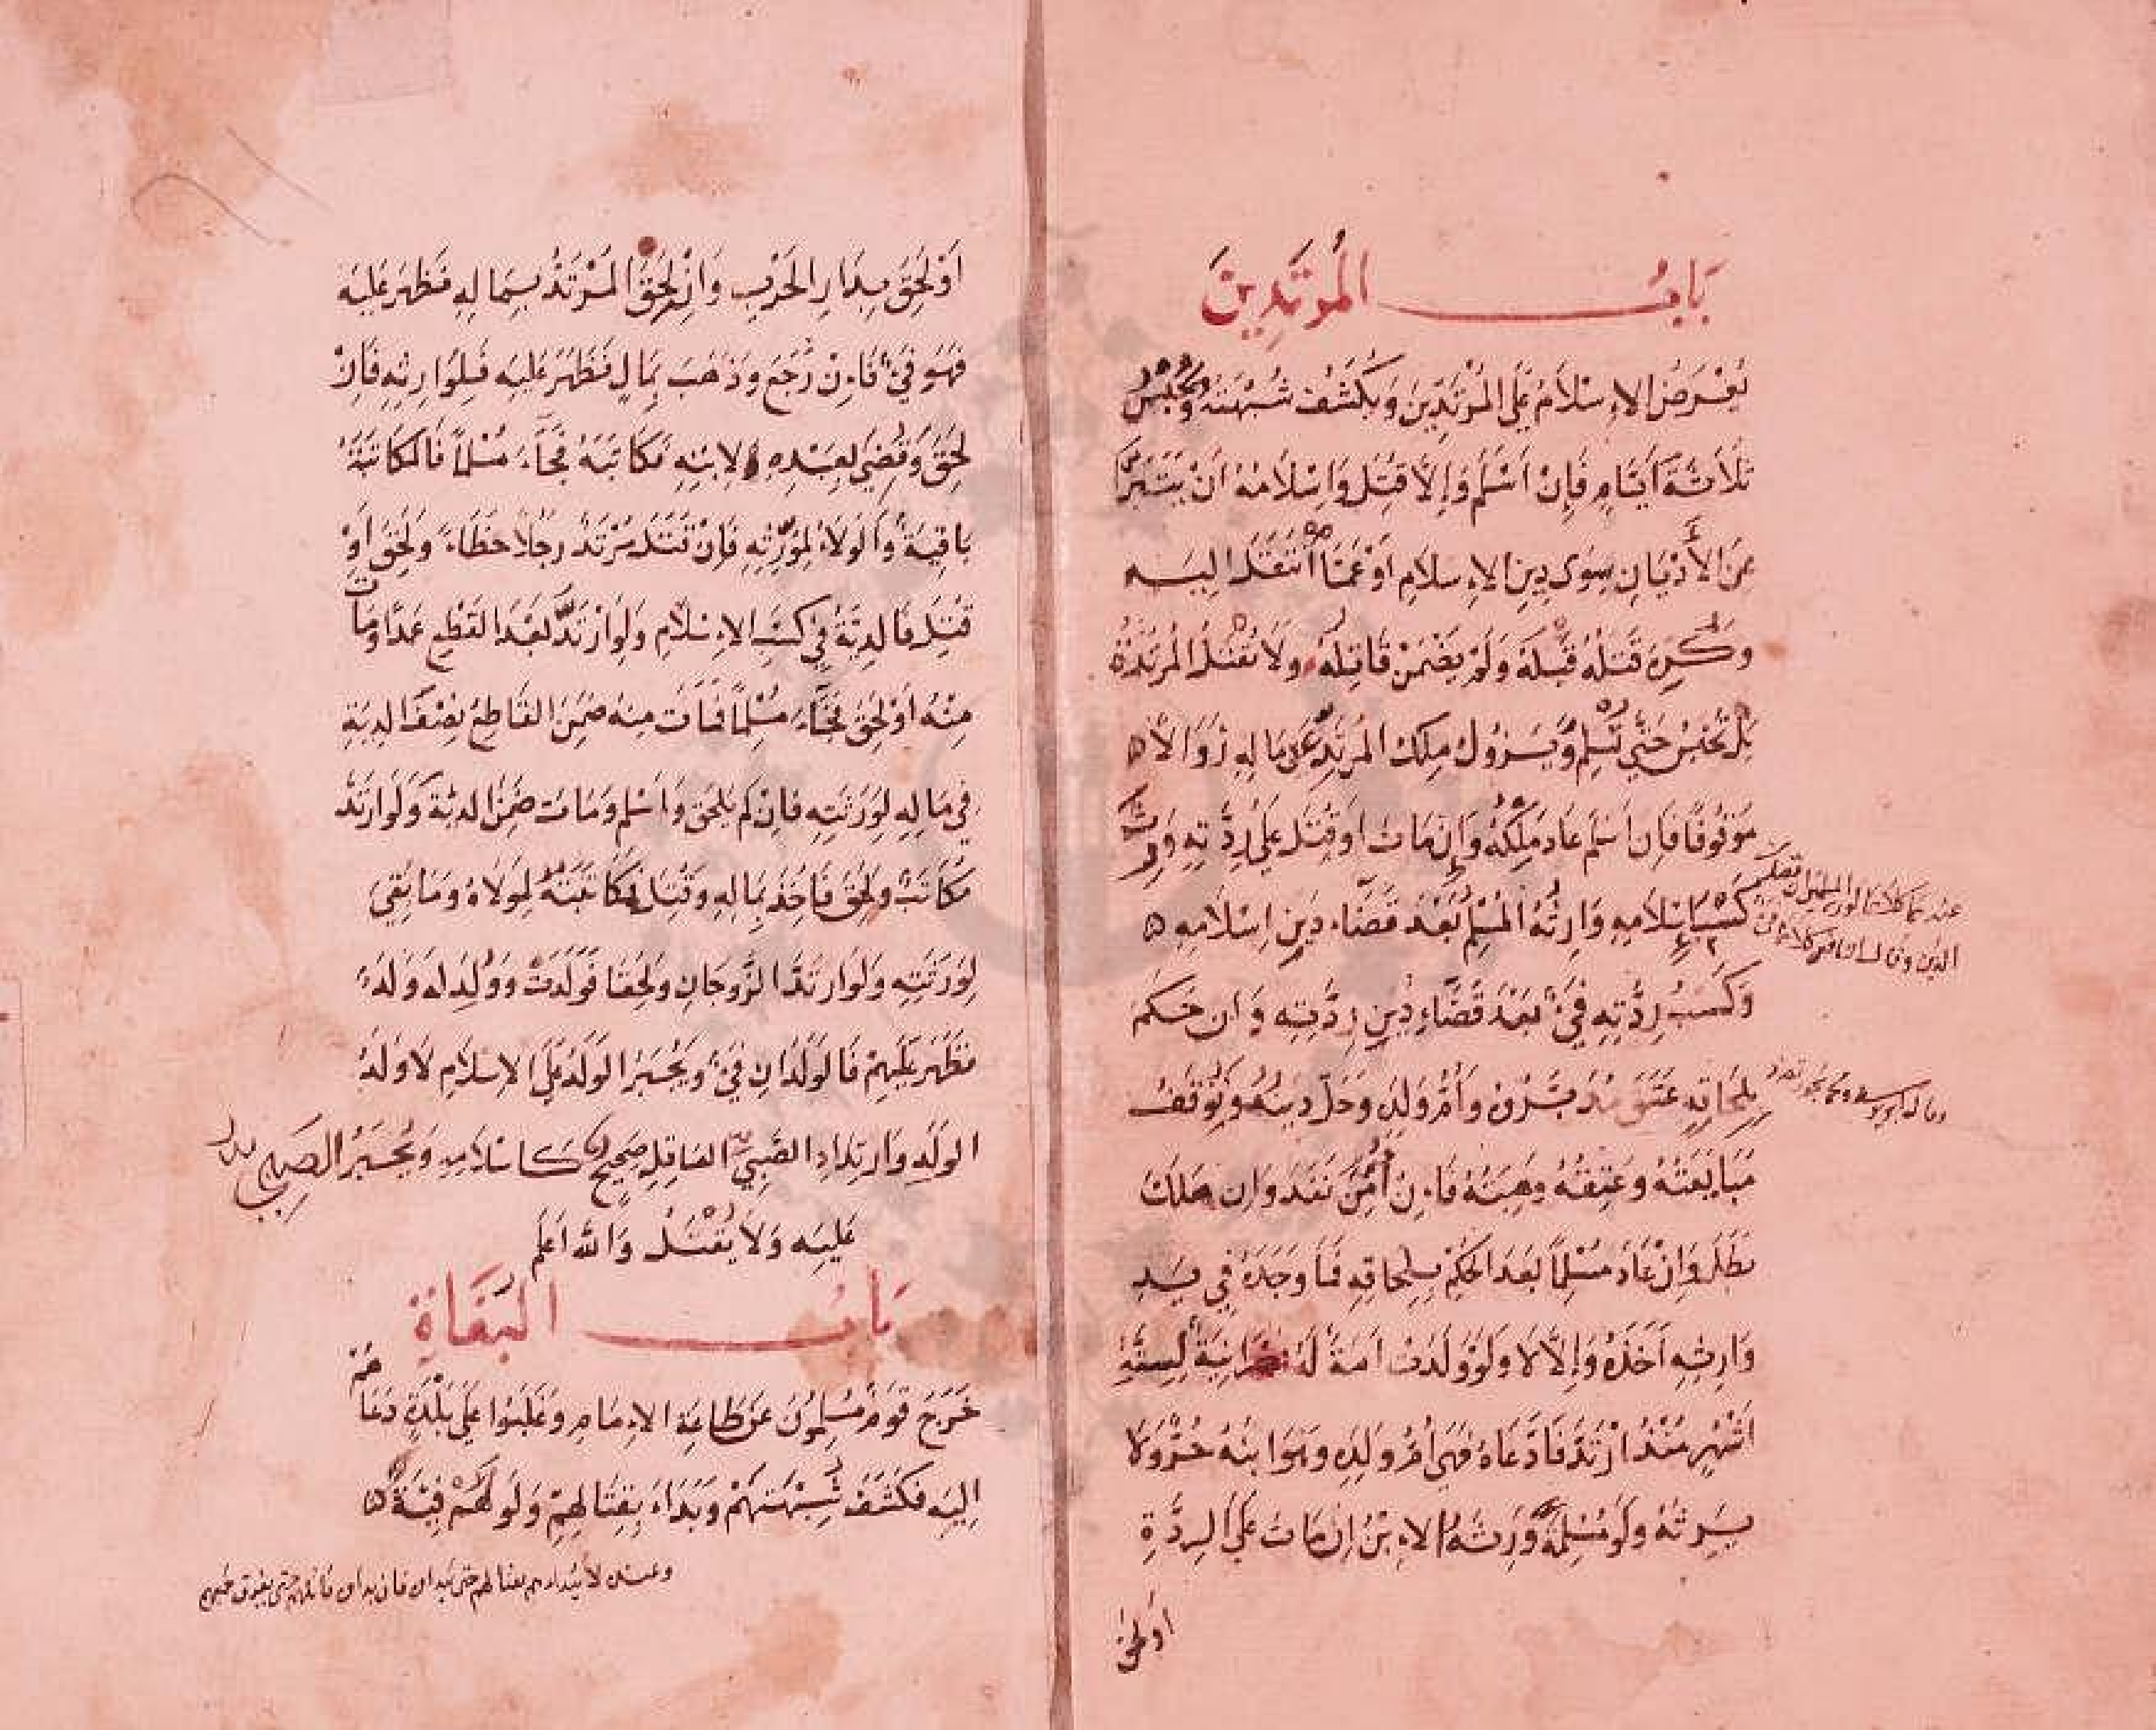 بَابُ المُرْتَدِينَ
يُعْرَضُ الإِسْلاَمُ عَلَى المُرْتَدِّينَ وَيُكْشَفُ شُبْهَتُهُ وَيُحْبَسُ
ثَلاَثَةَ أَيَّامٍ فَإِنْ أَسْلَمَ وَإِلاَّ قُتِلَ وَإِسْلاَمُهُ أَنْ يَتَبَرَّأَ
عَنِ الأَدْيَانِ سِوَى دِينِ الإِسلاَمِ أَوْ عَمَّا انْتَقَلَ إِلَيْهِ
وَكُرِهَ قَتْلُهُ قَبْلَهُ وَلَمْ يَضْمَنْ قَاتِلُهُ وَلاَ تُقْتَلُ المُرْتَدَّةُ
بَلْ تُحْبَسُ حَتَّى تُسْلِمَ وَيَزُولُ مِلْكُ المُرْتَدِّ عَنْ مَالِهِ زَوَالاً
مَوْقُوفًا فَإِنْ أَسْلَمَ عَادَ مِلْكُهُ وَإِنْ مَاتَ أَوْ قُتِلَ عَلَى رِدَّتِهِ وَرِثَ
كَسْبَ إِسْلاَمِهِ وَارِثُهُ المُسْلِمُ بَعْدَ قَضَاءِ دَيْنِ إِسْلاَمِهِ
وَكَسْبُ رِدَّتِهِ فَيْءٌ بَعْدَ قَضَاءِ دَيْنِ رِدَّتِهِ وَإِنْ حُكِمَ
بِلِحَاقِهِ عَتَقَ مُدَبَّرُهُ وَأُمُّ وَلَدِهِ وَحَلَّ دَيْنُهُ وَتُوقَفُ
مُبَايَعَتُهُ وَعِتْقُهُ وَهِبَتُهُ فَإِنْ أَمِنَ نَفَذَ وَإِنْ هَلَكَ
بَطَلَ وَإِنْ عَادَ مُسْلِمًا بَعْدَ الحُكْمِ بِلِحَاقِهِ فَمَا وَجَدَهُ فِي يَدِ
وَارِثِهِ أَخَذَهُ وَإِلاَّ لاَ وَلَوْ وَلَدَتْ أَمَةٌ لَهُ نَصْرَانِيَّةٌ لِسِتَّةِ
أَشْهُرٍ مُنْذُ ارْتَدَّ فَادَّعَاهُ فَهِيَ أُمُّ وَلَدِهِ وَهُوَ ابْنُهُ حُرٌّ وَلاَ
يَرِثُهُ وَلَوْ مُسْلِمَةً وَرِثَهُ الإِبْنُ إِنْ مَاتَ عَلَى الرِّدَّةِ
أو لحق
أَوْ لَحِقَ بِدَارِ الحَرْبِ وَإِنْ لَحِقَ المُرْتَدُّ بِمَالِهِ فَظُهِرَ عَلَيْهِ
فَهُوَ فَيْءٌ فَإِنْ رَجَعَ وَذَهَبَ بِمَالٍ فَظُهِرَ عَلَيْهِ فَلِوَارِثِهِ فَإِنْ
لَحِقَ وَقُضِيَ بِعَبْدِهِ لاِبْنِهِ فَكَاتَبَهُ فَجَاءَ مُسْلِمًا فَالمُكَاتَبَةُ
بَاقِيَةٌ وَالوَلاَءُ لِمُوَرِّثِهِ فَإِنْ قَتَلَ مُرْتَدٌّ رَجُلاً خَطَاءً وَلَحِقَ أَوْ
قُتِلَ فَالدِيَةُ فِي كَسْبِ الإِسْلاَمِ وَلَوِ ارْتَدَّ بَعْدَ القَطْعِ عَمْدًا وَمَاتَ
مِنْهُ أَوْ لَحِقَ فَجَاءَ مُسْلِمًا فَمَاتَ مِنْهُ ضَمِنَ القَاطِعُ نِصْفَ الدِيَةِ
فِي مَالِهِ لِوَرَثَتِهِ فَإِنْ لَمْ يَلْحَقْ وَأَسْلَمَ وَمَاتَ ضَمِنَ الدِيَةَ وَلَوِ ارْتَدَّ
مُكَاتَبٌ وَلَحِقَ فَأُخِذَ بِمَالِهِ وَقُتِلَ فَمُكَاتَبَتُهُ لِمَوْلاَهُ وَمَا بَقِيَ
لِوَرَثَتِهِ وَلَوِ ارْتَدَّ الزَّوْجَانِ وَلَحِقَا فَوَلَدَتْ وَوُلِدَ لَهُ وَلَدٌ
فَظُهِرَ عَلَيْهِمْ فَالوَلَدَانِ فَيْءٌ وَيُجْبَرُ الوَلَدُ عَلَى الإِسْلاَمِ لاَ وَلَدُ
الوَلَدِ وَارْتِدَادُ الصَّبِيِّ العَاقِلِ صَحِيحٌ كَإِسْلاَمِهِ وَيُجْبَرُ الصَبِيُّ
عَلَيْهِ وَلاَ يُقْتَلُ وَاللهُ أَعْلَمُ
بَابُ البُغَاةِ
خَرَجَ قَوْمٌ مُسْلِمُونَ عَنْ طَاعَةِ الإِمَامِ وَغَلَبُوا عَلَى بَلْدَةٍ دَعَاهُمْ
إِلَيْهِ فَكَشَفَ شُبْهَتَهُمْ وَبَدَاءَ بِقِتَالِهِمْ وَلَوْ لَهُمْ فِئَةٌ